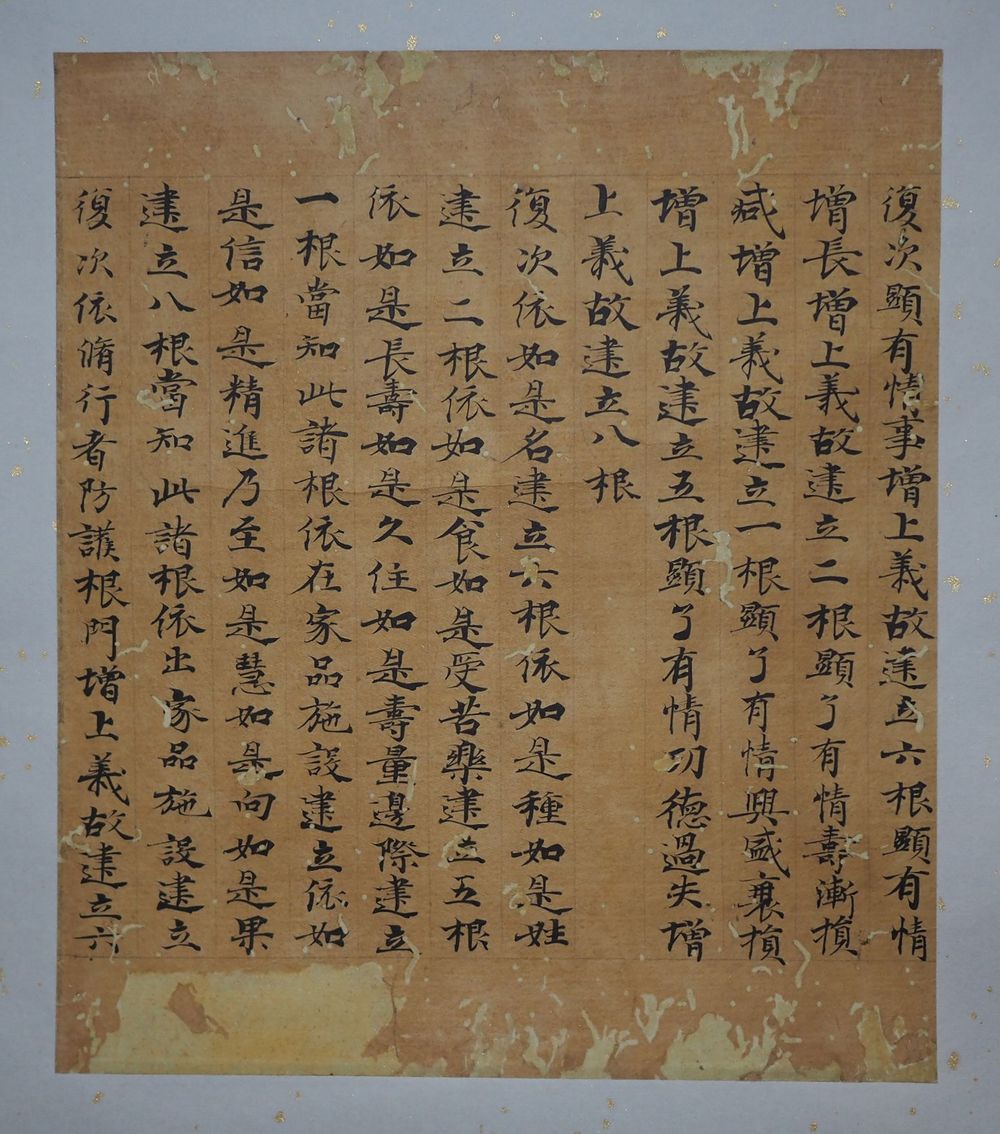 復次顯有情事增上義故建立六根顯有情
増長増上義故建立二根顯了有情壽漸損
減增上義故建立一根顯了有情興盛衰損
增上義故建立五根顯了有情功德過失增
上義故建立八根
復次依如是名建立六根依如是種如是姓
建立二根依如是食如是受苦樂建立五根
依如是長壽如是久住如是壽量邊際建立
一根當知此諸根依在家品施設建立依如
是信如是精進乃至如是慧如是向如是果
建立八根當知此諸根依出家品施設建立
復次依脩行者防護根門增上義故建立六